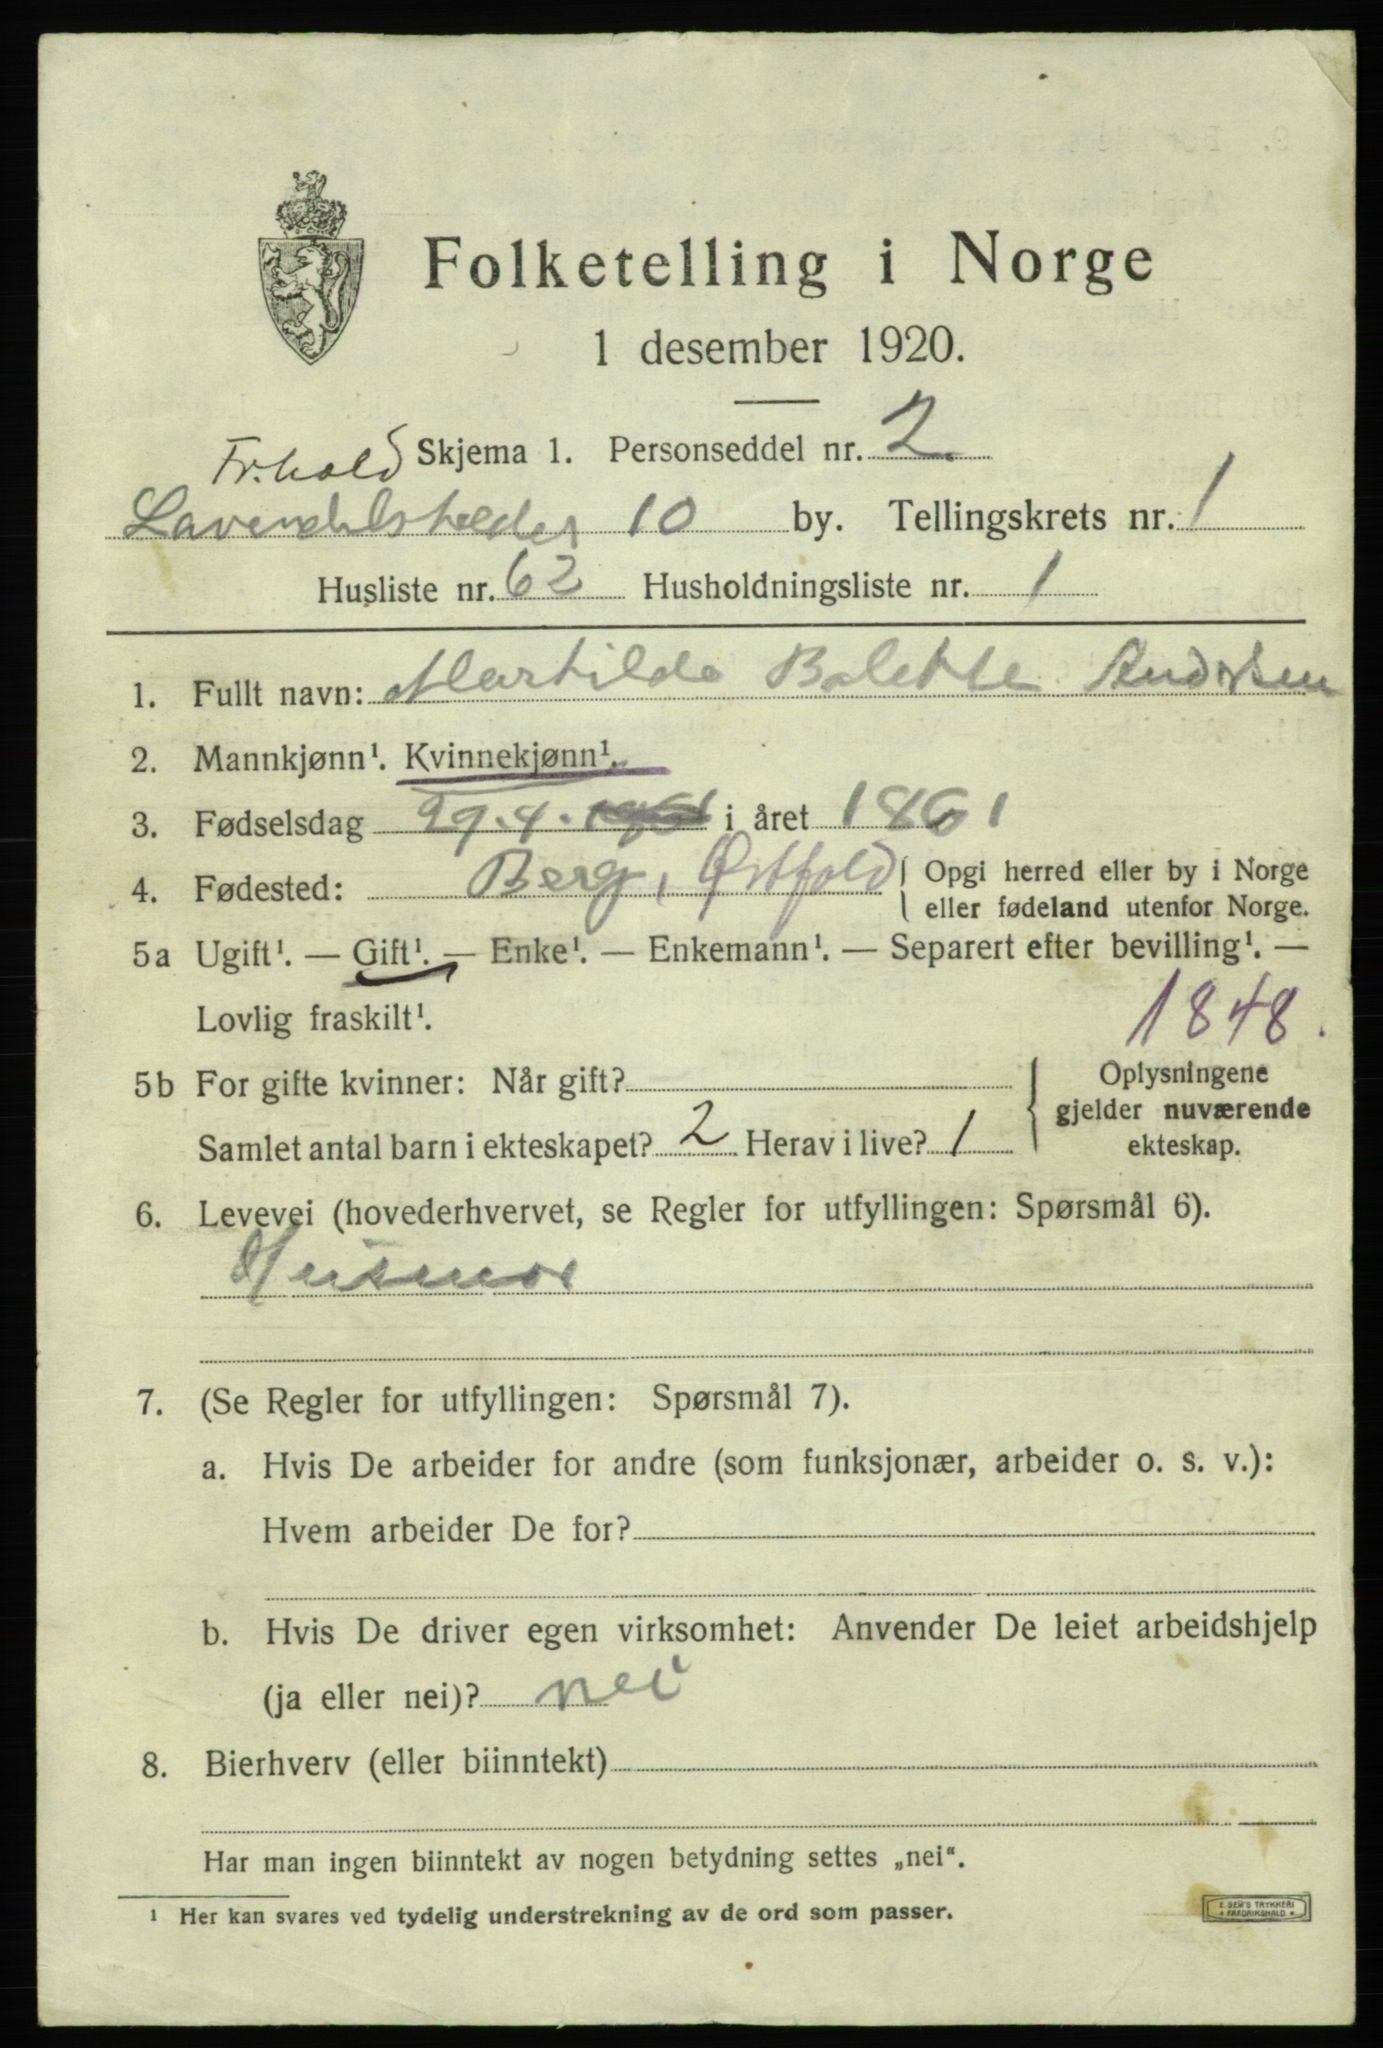 Folketelling i Norge
1 desember 1920.
Fr.hald Skjema 1. Personseddel nr. 2.
10 by. Tellingskrets nr. 1
Husliste nr. 62 Husholdningsliste nr. 1
1. Fullt navn: Martilde Bolette Andersen
2. Mannkjønn¹. Kvinnekjønn¹.
3. Fødselsdag 29.4. i året 1861
4. Fødested: Berg, Østfold { Opgi herred eller by i Norge
eller fødeland utenfor Norge.
5a Ugift¹. — Gift¹. — Enke¹. — Enkemann¹. — Separert efter bevilling¹. —
Lovlig fraskilt¹.
1848.
5b For gifte kvinner: Når gift?
Samlet antal barn i ekteskapet? 2 Herav i live? 1
Oplysningene
gjelder nuværende
ekteskap.
6. Levevei (hovederhvervet, se Regler for utfyllingen: Spørsmål 6).
Husmor
7. (Se Regler for utfyllingen: Spørsmål 7).
a. Hvis De arbeider for andre (som funksjonær, arbeider o. s. v.):
Hvem arbeider De for?
b. Hvis De driver egen virksomhet: Anvender De leiet arbeidshjelp
(ja eller nei)? nei
8. Bierhverv (eller biinntekt)
Har man ingen biinntekt av nogen betydning settes „nei“.
¹ Her kan svares ved tydelig understrekning av de ord som passer.
E. SEM'S TRYKKERI
FREDRIKSHALD